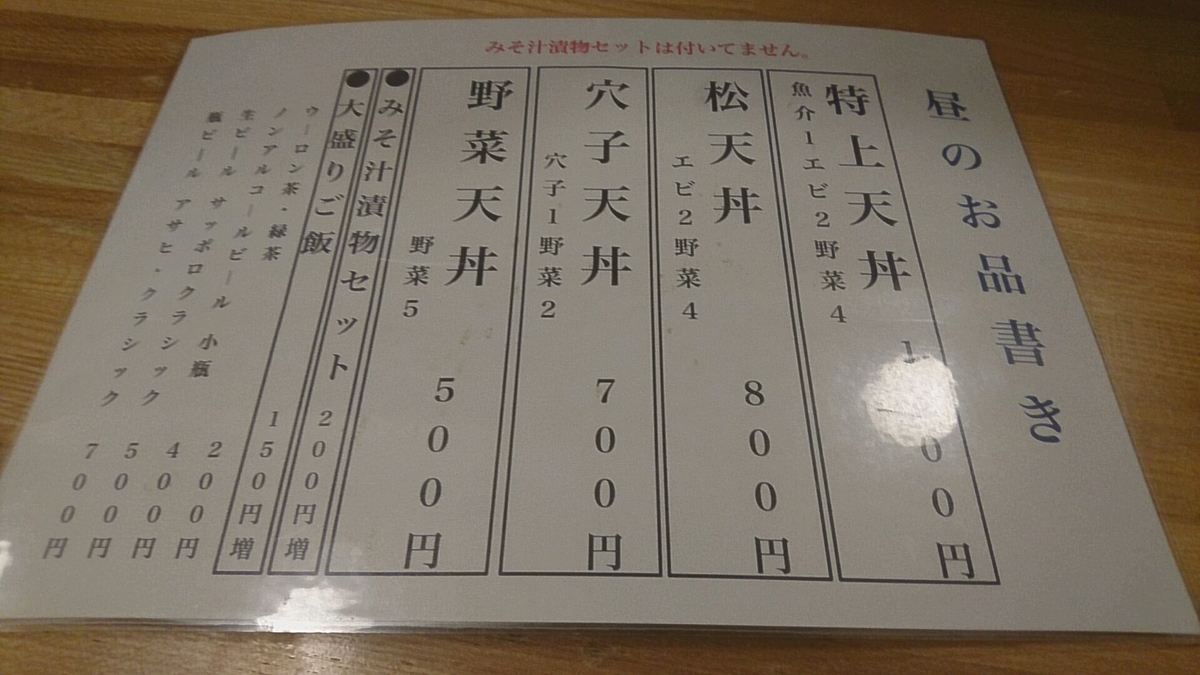 みそ汁漬物セットは付いてません。
昼のお品書き
特上天丼
魚介1エビ2野菜4
松天丼 800円
エビ2野菜4
穴子天丼 700円
穴子1野菜2
野菜天丼 500円
野菜5
●みそ汁漬物セット 200円増
●大盛りご飯 150円増
ウーロン茶・緑茶 200円
ノンアルコールビール 小瓶 400円
生ビール サッポロクラシック 500円
瓶ビール アサヒ・クラシック 700円